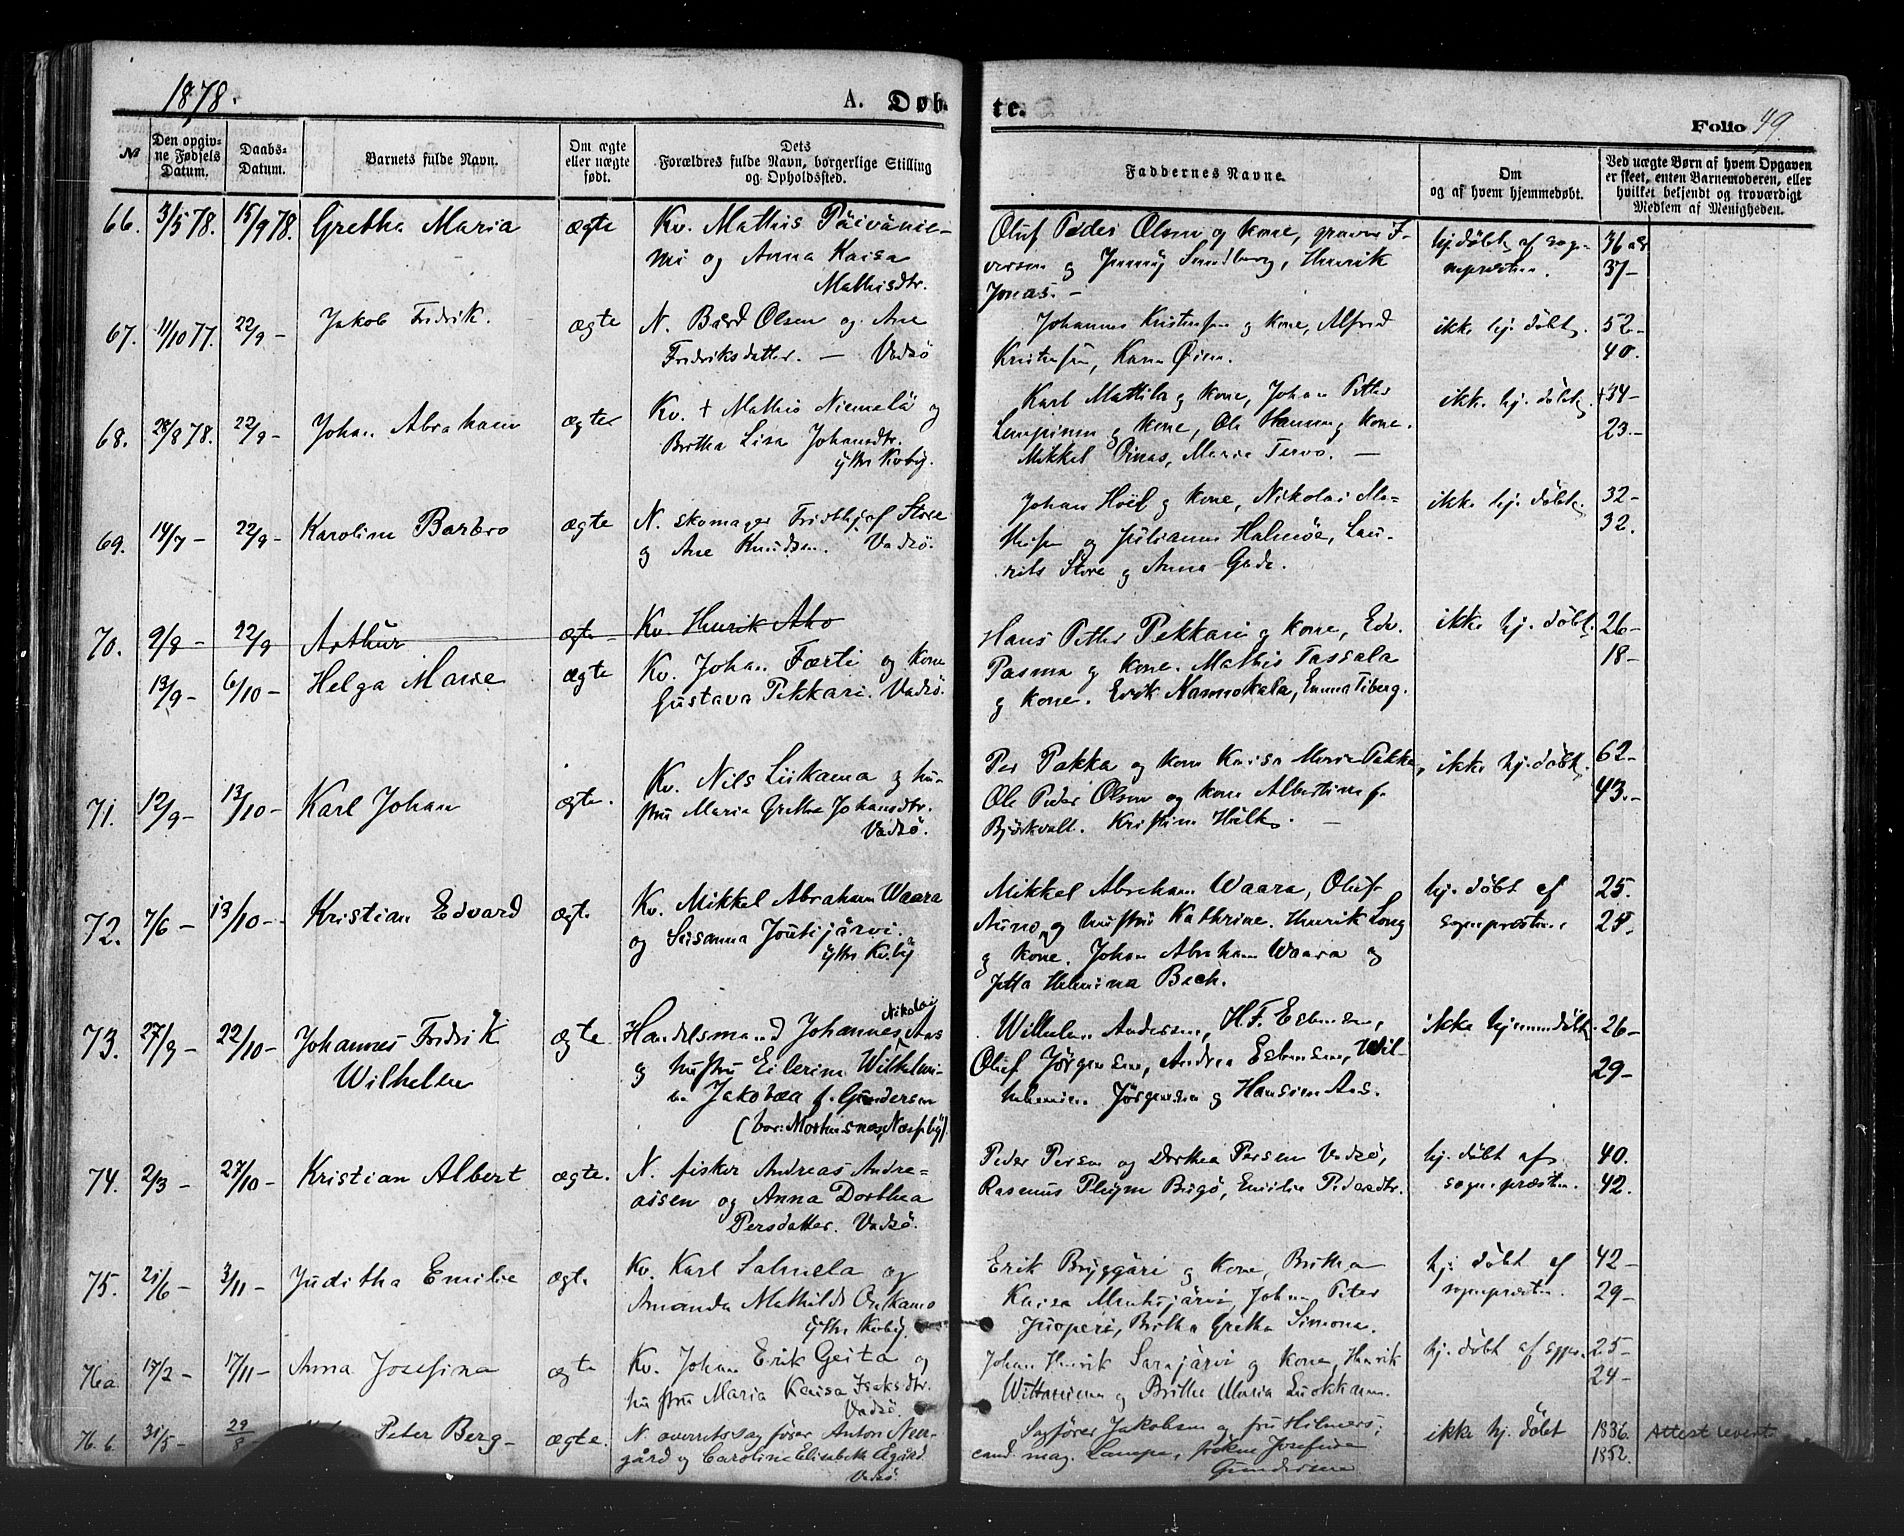 1878.
A. Døbte.
Folio 49
No
Den opgivne Fødsels Datum.
Daabs-Datum.
Barnets fulde Navn.
Om ægte eller uægte født.
Dets Forældres fulde Navn, borgerlige Stilling og Opholdssted.
Faddernes Navne.
Om og af hvem hjemmedøbt.
Ved uægte Børn af hvem Opgaven er skeet, enten Barnemoderen, eller hvilket bekjendt og troværdigt Medlem af Menigheden.
66. 3/5 78. 15/9 78. Gretha Maria ægte Kv. Mathis Päivänie-
mi og Anna Kaisa
Mathisdtr.
Oluf Peder Olsen og kone, graver I-
versen og Jenny Sundberg, Henrik
Jonas. —
hj. døbt af sog-
nepresten.
36
37-
67. 11/10 77. 22/9 - Jakob Fredrik. ægte N. Bård Olsen og Ane
Fredriksdatter. — Vadsö
Johannes Kristensen og kone, Alfred
Kristensen, Karen Øien.
ikke hj. døbt.
52-
40.
68. 28/8 78. 22/9 - Johan Abraham ægte Kv. + Mathis Niemelä og
Britha Lisa Johansdtr.
ythr Kvby.
Karl Mattila og kone, Johan Petter
Lempinen og kone, Ole Hannu og kone.
Mikkel Oinas, Maria Tervo. —
ikke hj. døbt.
34-
23.-
69. 14/7 - 22/9 - Karoline Barbro ægte N. skomager Fridthjof Store
og Ane Knudsen. Vadsö.
Johan Hoel og kone, Nikolai Ma-
thisen og Julianne Halmøe, Lau-
rits Store og Anna Gade.
ikke hj. døbt.
32-
32.
70. 9/8 - 22/9 Arthur ægte Kv. Henrik Aho
13/9 - 6/10 - Helga Marie ægte Kv. Johan Førti og kone
Gustava Pekkari. Vadsö.
Hans Petter Pekkari og kone, Edv.
Pasma og kone. Mathis Tassala
og kone. Erik Nammokala, Emma Tiberg.
ikke hj. døbt.
26-
18-
71. 12/9 - 13/10 - Karl Johan ægte. Kv. Nils Liikama og hu-
stru Maria Gretha Johansdtr.
Vadsö.
Per Pakka og kone Kaisa Maria Pakka,
Ole Peder Olsen og kone Albertina f.
Björkvall. Kristine Hulk. —
ikke hj. døbt
62-
43.-
72. 7/6 - 13/10 - Kristian Edvard ægte Kv. Mikkel Abraham Waara
og Susanna Joutijärvi.
ythr Kvby
Mikkel Abraham Waara, Oluf
Auno og hustru Kathrine. Henrik Long
og kone. Johan Abraham Waara og
Jetta Helmina Bech.
hj. døbt af
sognepresten.
25.
25.
73. 27/9 - 22/10 - Johannes Fredrik
Wilhelm
ægte. Handelsmand Johannes Nikolai Aas
og hustru Eilerine Wilhelmi-
ne Jakobæa f. Gundersen
(bor: Mortensnæs, Næsseby).
Wilhelm Andersen, H. F. Esbensen,
Oluf Jörgensen, Andrea Esbensen, Wil-
helmine Jörgensen og Hansine Aas.
ikke hjemmedøbt
26-
29-
74. 2/3 - 27/10 - Kristian Albert ægte. N. fisker Andreas Andre-
assen og Anna Dorthea
Persdatter. Vadsö.
Peder Persen og Dorthea Persen Vadsö,
Rasmus Plhym Bugö, Emilie Pedersdtr.
hj. døbt af
sognepresten.
40.
42.
75. 21/6 - 3/11 - Juditha Emilie ægte Kv. Karl Salmela og
Amanda Mathilde Onkamo
ythr Kvby.
Erik Bryggäri og kone, Britha
Kaisa Mentyjärvi, Johan Peter
Juoperi, Britha Gretha Simona.
hj. døbt af
sognepresten.
42-
29-
76a 17/2 - 17/11 - Anna Josefina ægte Kv. Johan Erik Geita og
hustru Maria Kaisa Isaksdtr.
Vadsö.
Johan Henrik Sarajärvi og kone, Henrik
og Britha Maria Luokkanen.
hj. døbt af sgpr.
25-
24-
76.b 31/5 - 29/8 Peter Berg- ægte. N. overretssagfører Anton Neer-
gård og Caroline Elisabeth Ågård
Vadsö
Sagfører Jakobsen og fru Hilmers;
cand mag. Lampe, frøken Josefine
Gundersen
ikke hj. døbt
1836.
1852.
Attest levert